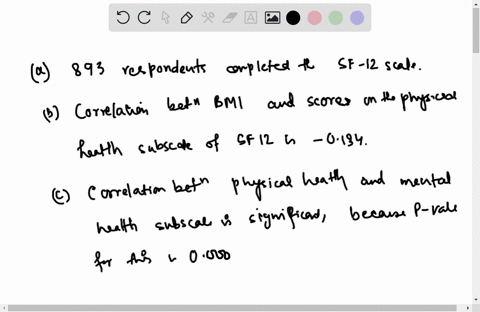 (a) 893 respondents completed the SF-12 scale.
(b) Correlation betⁿ BMI and scores on the physical
health subscale of SF12 is -0.134.
(c) Correlation betⁿ physical health and mental
health subscal is significant, because P-vale
for this is 0.000